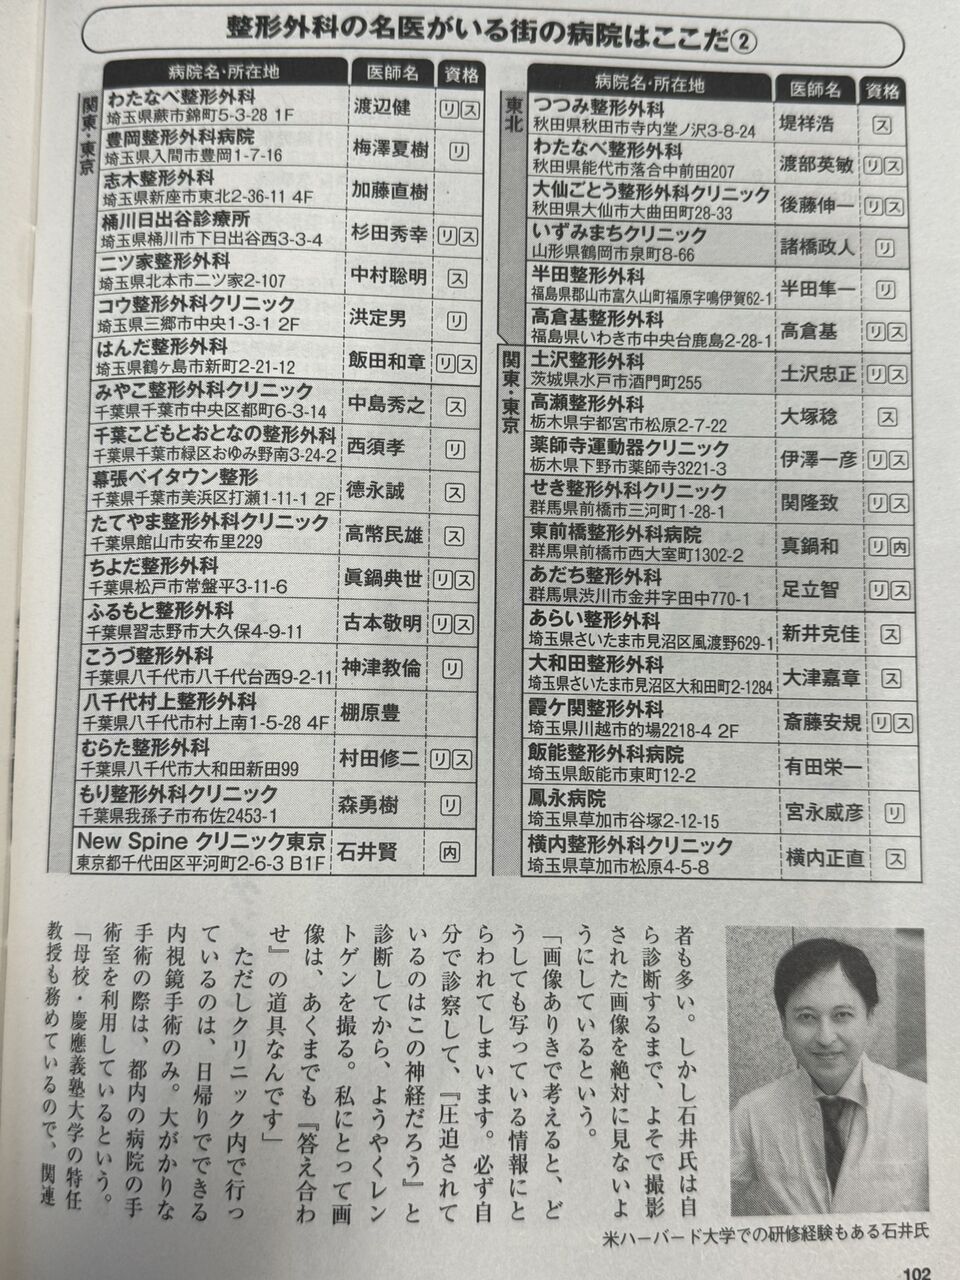 整形外科の名医がいる街の病院はここだ②
病院名・所在地 医師名 資格
東北
つつみ整形外科 堤祥浩 ス
秋田県秋田市寺内堂ノ沢3-8-24
わたなべ整形外科 渡部英敏 リ ス
秋田県能代市落合中前田207
大仙ごとう整形外科クリニック 後藤伸一 リ ス
秋田県大仙市大曲田町28-33
いずみまちクリニック 諸橋政人 リ
山形県鶴岡市泉町8-66
半田整形外科 半田隼一 リ
福島県郡山市富久山町福原字鳴伊賀62-1
高倉基整形外科 高倉基 リ ス
福島県いわき市中央台鹿島2-28-1
関東・東京
土沢整形外科 土沢忠正 リ ス
茨城県水戸市酒門町255
高瀬整形外科 大塚稔 ス
栃木県宇都宮市松原2-7-22
薬師寺運動器クリニック 伊澤一彦 リ ス
栃木県下野市薬師寺3221-3
せき整形外科クリニック 関隆致 リ ス
群馬県前橋市三河町1-28-1
東前橋整形外科病院 真鍋和 リ 内
群馬県前橋市西大室町1302-2
あだち整形外科 足立智 リ ス
群馬県渋川市金井字田中770-1
あらい整形外科 新井克佳 ス
埼玉県さいたま市見沼区風渡野629-1
大和田整形外科 大津嘉章 ス
埼玉県さいたま市見沼区大和田町2-1284
霞ケ関整形外科 斎藤安規 リ ス
埼玉県川越市的場2218-4 2F
飯能整形外科病院 有田栄一
埼玉県飯能市東町12-2
鳳永病院 宮永威彦 リ
埼玉県草加市谷塚2-12-15
横内整形外科クリニック 横内正直 ス
埼玉県草加市松原4-5-8
病院名・所在地 医師名 資格
関東・東京
わたなべ整形外科 渡辺健 リ ス
埼玉県蕨市錦町5-3-28 1F
豊岡整形外科病院 梅澤夏樹 リ
埼玉県入間市豊岡1-7-16
志木整形外科 加藤直樹
埼玉県新座市東北2-36-11 4F
桶川日出谷診療所 杉田秀幸 リ ス
埼玉県桶川市下日出谷西3-3-4
二ツ家整形外科 中村聡明 ス
埼玉県北本市二ツ家2-107
コウ整形外科クリニック 洪定男 リ
埼玉県三郷市中央1-3-1 2F
はんだ整形外科 飯田和章 リ ス
埼玉県鶴ヶ島市新町2-21-12
みやこ整形外科クリニック 中島秀之 ス
千葉県千葉市中央区都町6-3-14
千葉こどもとおとなの整形外科 西須孝 リ
千葉県千葉市緑区おゆみ野南3-24-2
幕張ベイタウン整形 德永誠 ス
千葉県千葉市美浜区打瀬1-11-1 2F
たてやま整形外科クリニック 高幣民雄 ス
千葉県館山市安布里229
ちよだ整形外科 眞鍋典世 リ ス
千葉県松戸市常盤平3-11-6
ふるもと整形外科 古本敬明 リ ス
千葉県習志野市大久保4-9-11
こうづ整形外科 神津教倫 リ
千葉県八千代市八千代台西9-2-11
八千代村上整形外科 棚原豊
千葉県八千代市村上南1-5-28 4F
むらた整形外科 村田修二 リ ス
千葉県八千代市大和田新田99
もり整形外科クリニック 森勇樹 リ
千葉県我孫子市布佐2453-1
New Spine クリニック東京 石井賢 内
東京都千代田区平河町2-6-3 B1F
者も多い。しかし石井氏は自
ら診断するまで、よそで撮影
された画像を絶対に見ないよ
うにしているという。
「画像ありきで考えると、ど
うしても写っている情報にと
らわれてしまいます。必ず自
分で診察して、『圧迫されて
いるのはこの神経だろう』と
診断してから、ようやくレン
トゲンを撮る。私にとって画
像は、あくまでも『答え合わ
せ』の道具なんです」
ただしクリニック内で行っ
ているのは、日帰りでできる
内視鏡手術のみ。大がかりな
手術の際は、都内の病院の手
術室を利用しているという。
「母校・慶應義塾大学の特任
教授も務めているので、関連
米ハーバード大学での研修経験もある石井氏
102